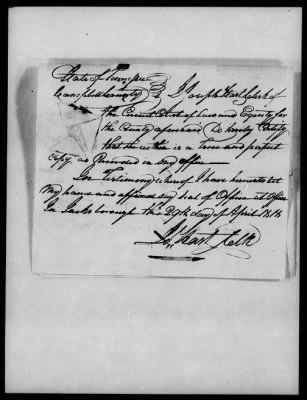 State of Tennessee
Campbell County } I Joseph Hart Clerk of
the Circuit Court of Law and Equity for
the County aforesaid Do hereby Certify
that the within is a True and perfect
Copy as Recorded in my Office
In Testimony whereof I have hereunto set
My hand and affixed my seal of Office at Office
In Jacksborough this 29th day of April 1818
Jo Hart Clk